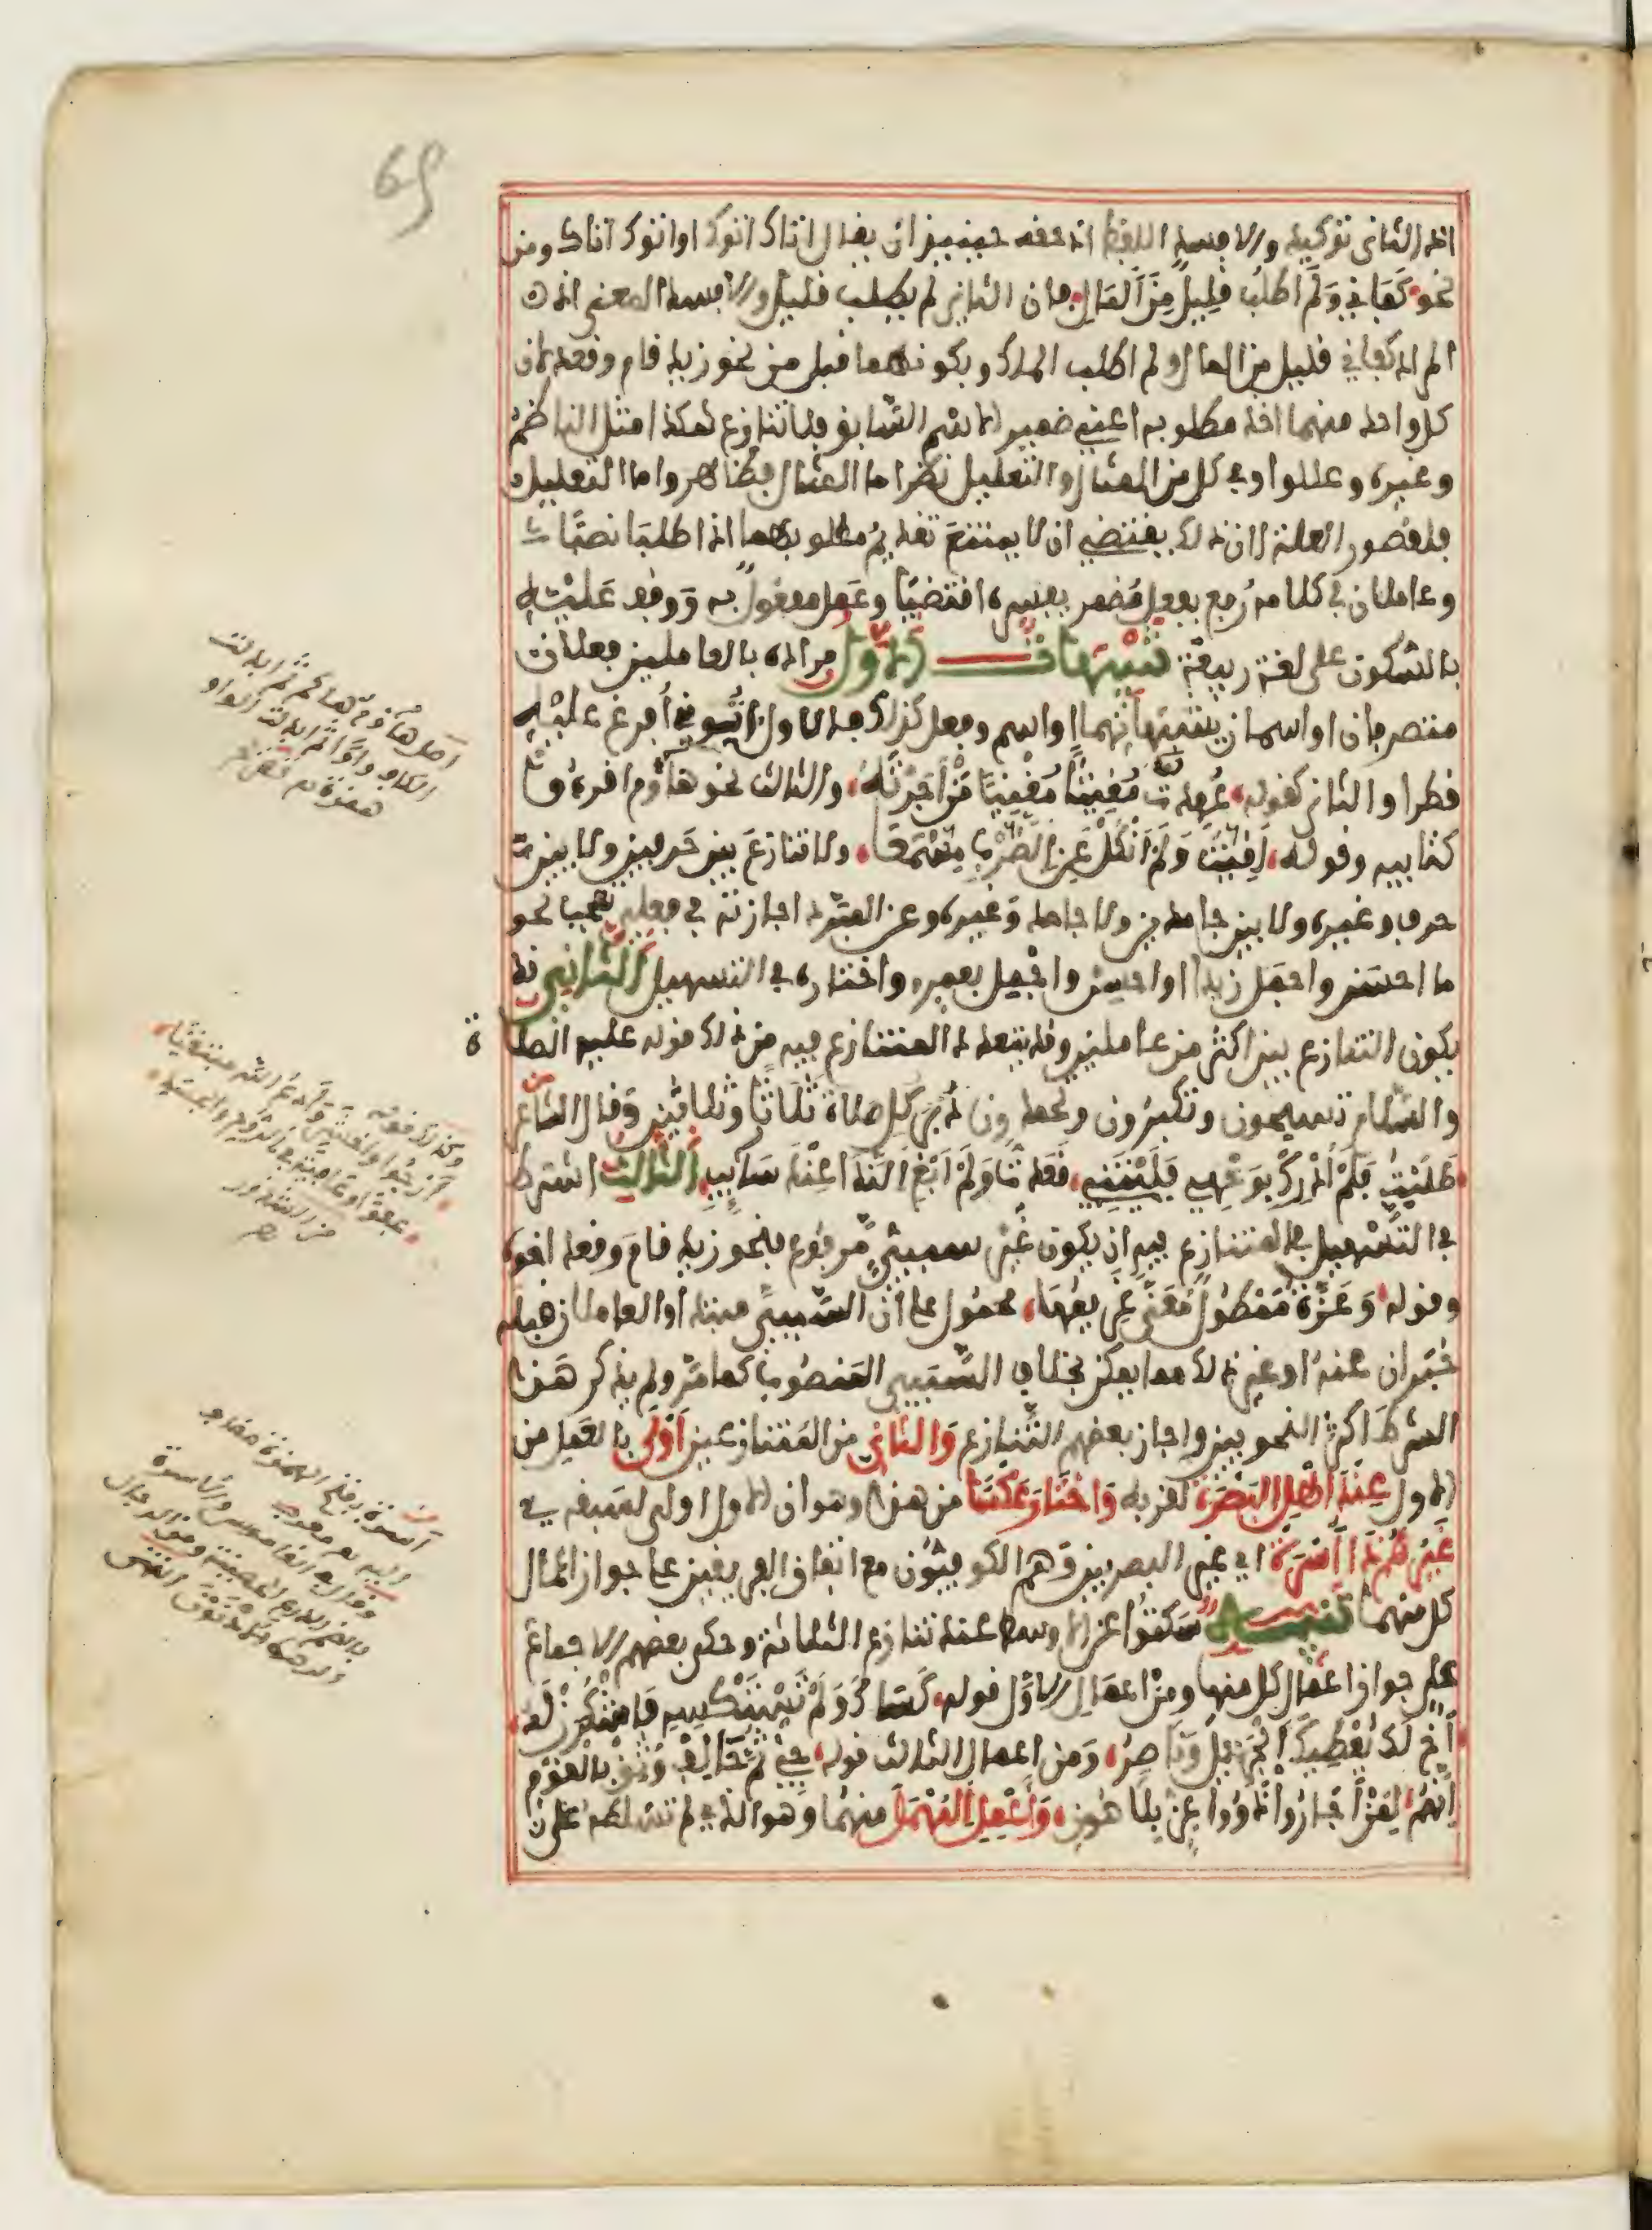 اذ الثانى توكيد والا فسد اللفظ اذ حقه حينئذ ان يقال اتاك اتوك او اتوك اتاك ومن
نحو كَفَانِي وَلَمْ اطلُبْ قَلِيلٌ مِنَ المَالِ فان الثانى لم يطلب قليل والا فسد المعنى اذ
المراد كفانى قليل من المال ولم اطلب الملك وبكونهما قبل من نحو زيد قام وقعد لان
كل واحد منهما اخذ مطلوبه اعنى ضمير الاسم السابق فلا تنازع هكذا مثل الناظم
وغيره وعللوا وفى كل من المثال والتعليل نظر اما المثال فظاهر واما التعليل
فلقصور العلة لان ذلك يقتضى ان لا يمتنع تقديم مطلوبهما اذا طلبا نصبا
وعاملان فى كلامه رُفع بفعل مُضمر يفسره اقتضيا وعَمل مفعول به وَوقف عَليْه
بالسكون على لغة ربيعة تنبيهات الاول مراده بالعاملين فعلان
متصرفان او اسمان يشبهانهما او اسم وفعل كذلك فالاول اتُونِي أُفْرِغْ عَلَيْهِ
قطرا والثانى كقوله عُهدتَ مُغِيثًا مُغْنِيًا مَنْ أَجَرْتَهُ والثالث نحو هاؤم اقرءوا
كتابيه وقوله لَقِيتُ وَلَمْ أَنْكُلْ عَنِ الضَّرْبِ مِسْمَعَا ولا تنازع بين حَرفين ولا بين
حرف وغيره ولا بين جامدين ولا جامد وَغيره وعن المبرد اجازته فى فعلي تعجب نحو
ما احسن واجمل زيدا او احسن واجمل بعمرو واختاره فى التسهيل الثانى قد
يكون التنازع بين اكثر من عاملين وقد يتعدد المتنازع فيه من ذلك قوله عليه الصلاة
والسلام تسبحون وتكبرون وتحمدون دُبُرَ كل صلاة ثَلَاثًا وثلاثين وَقال الشاعر
طَلَبْتُ فَلَمْ أُدْرِكْ بِوَجْهِي فَلَيْتَنِي قَعَدْتُ وَلَمْ أَبْغِ النَّدَا عِنْدَ سَائِبِ الثالث اشترط
فى التسهيل فى المتنازع فيه ان يكون غَيْر سببيٍّ مَرفوع فنحو زيد قام وَقعد اخوه
وقوله وَعَزَّة مَمْطُولٌ مُعَنًّى غَرِيمُهَا محمول على أن السَّببيّ مبتدا والعاملان قبله
خَبَران عنه او غير ذلك مما يمكن بخلاف السَّببي المَنصُوب كما مَر ولم يذكر هَذا
الشرط اكثر النحويين واجاز بعضهم التنازع وَالثاني من المتنازعين اَوْلَى بالعَمل من
الاول عِنْدَ اهْلِ البَصْرَة لقربه وَاخْتَارَ عَكْسًا من هذا وهو ان الاول اولى لسبقه
غَيْرُهُمْ ذَا أُسْرَةْ اي غير البصريين وَهم الكوفيون مع اتفاق الفريقين على جواز اعمال
كل منهما تنبيه سَكتُوا عن الاوسط عند تنازع الثلاثة وحكى بعضهم الاجماع
على جواز اعمال كل منها ومن اعمال الاوَّل قوله كَسَاكَ وَلَمْ تَسْتَكْسِهِ فَاشْكُرَنْ لَهُ
أَخٌ لَكَ يُعْطِيكَ الْجَزِيلَ وَنَاصِرُ وَمن اعمال الثالث قوله جِئْ ثُمَّ حَالِفْ وَثِقْ بِالْقَوْمِ
إِنَّهُمْ لِمَنْ أَجَارُوا ذَوُوا عِزٍّ بِلَا هُونِ وَأَعْمِلِ المُهْمَلَ منهُما وَهو الذي لم تسلطه على
اصل هاؤم هاكم ثم ابدلت
الكاف واوا ثم ابدلت الواو
همزة
وكذا قوله
ارجوا واخشى وادعو الله مبتغيا
عفوا وعافية فى الروح والجسد
من الشذور
اسرة بفتح الهمزة
بالضم الدرع الحصينة